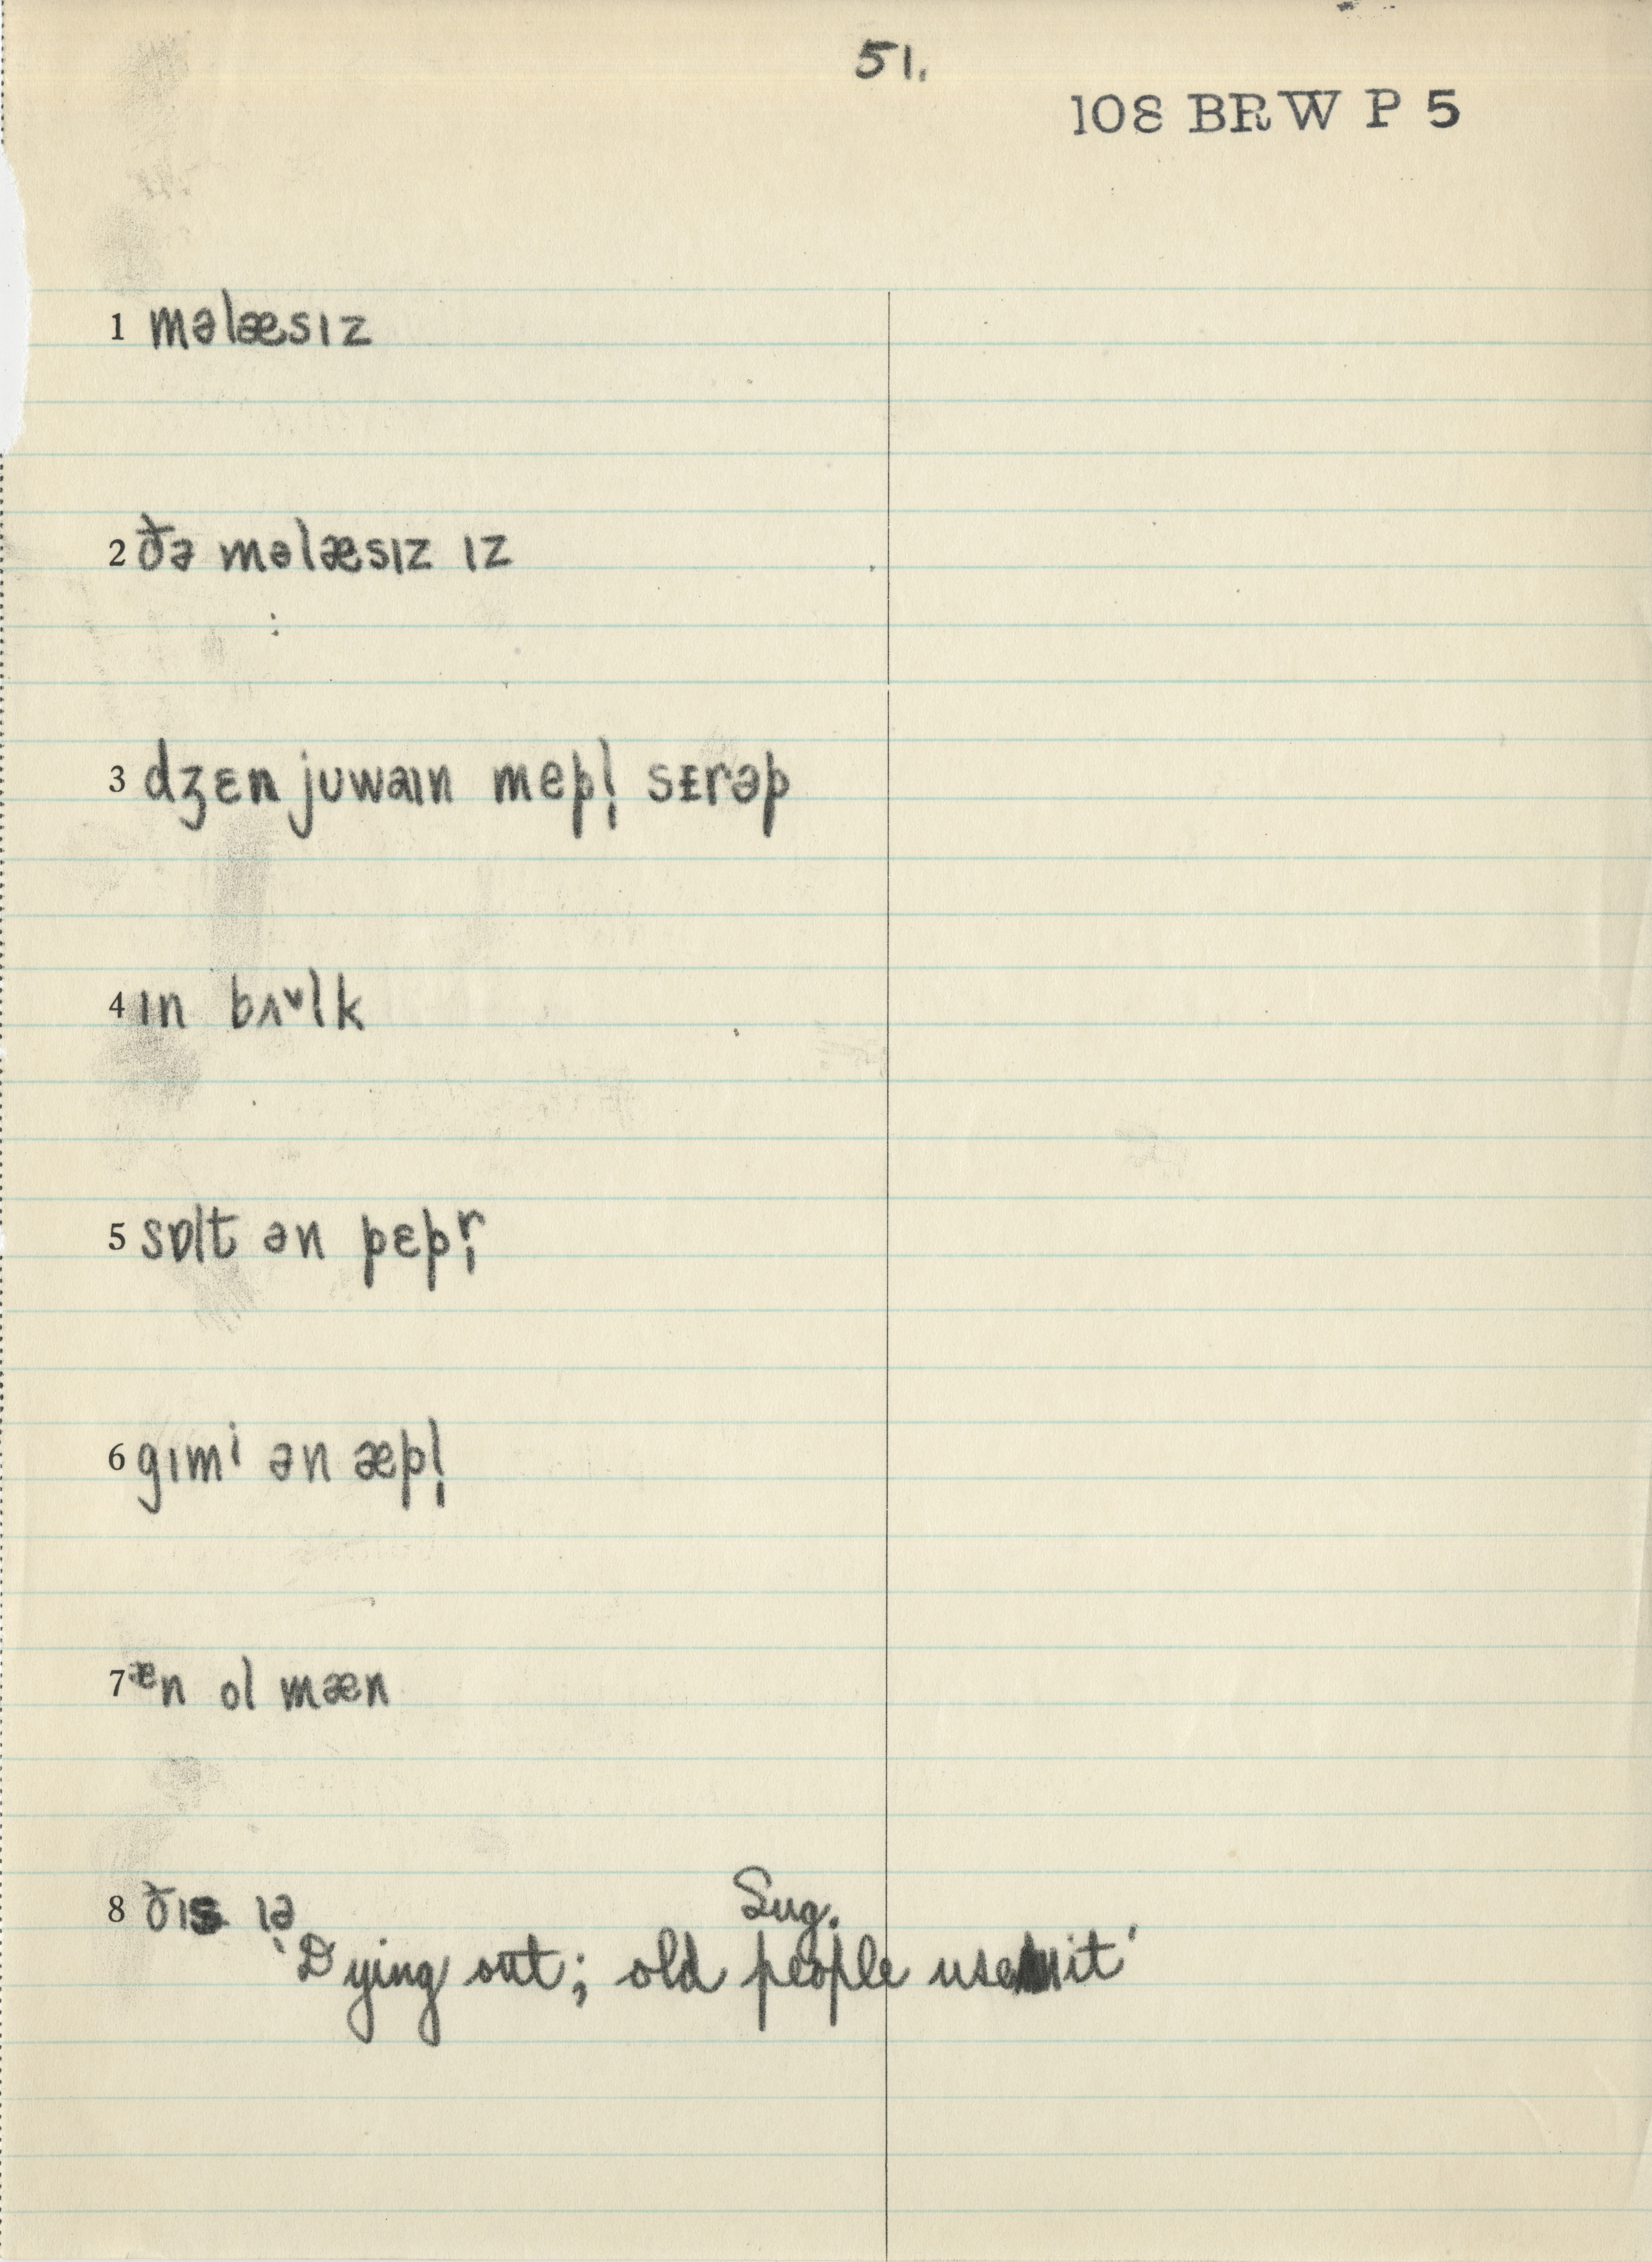 51.
108 BRW P 5
1 məlæsɪz
2 ðə məlæsɪz ɪz
3 dʒɛn juwaɪn mepl̩ sᵻrəp
4 ɪn bʌᵛlk
5 sɒlt ən pɛpr̩
6 gɪmⁱ ən æpl̩
7 ᵆn ol mæn
8 ðɪs ɪə
Sug.
'Dying out; old people use it'